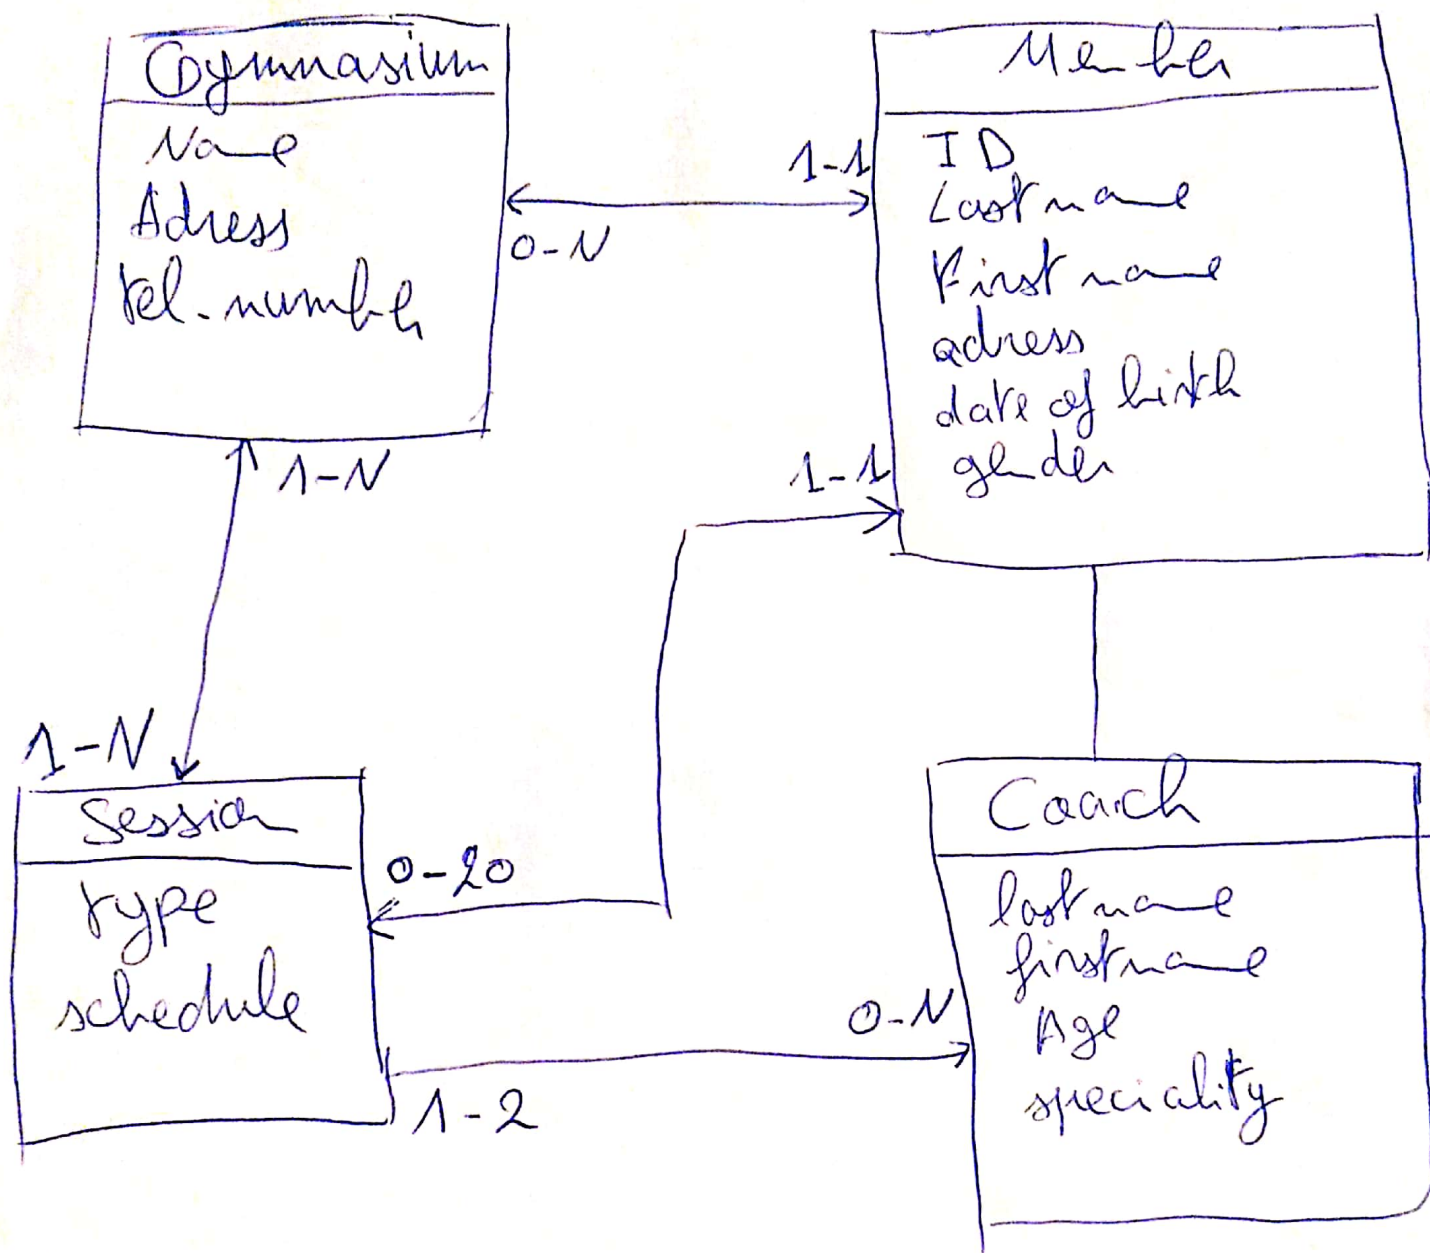 Gymnasium
Name
Adress
tel. number
0-N
1-N
1-1
Member
ID
Last name
First name
adress
date of birth
gender
1-1
1-N
Session
type
schedule
0-20
1-2
0-N
Coach
last name
firstname
Age
speciality